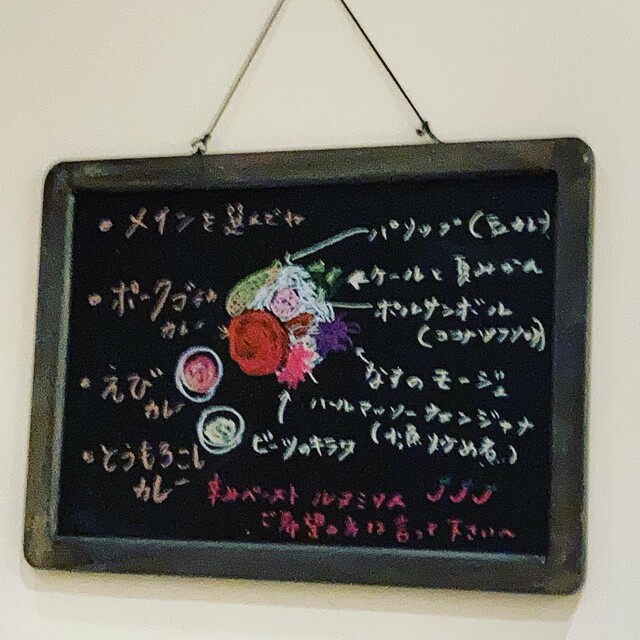 • メインを選んでね
• ポークゴアカレー
• えびカレー
• とうもろこしカレー
パリップ(豆カレー)
ケールと夏みかん
ポルサンボル
(ココナッツフレーク)
なすのモージュ
ハールマッソー
(小魚炒め煮)
ビーツのキラタ
辛みペースト ルヌミリス
ご希望の方は言って下さい〜